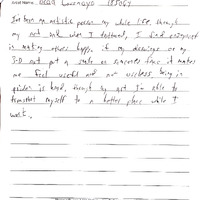 Artist Name:
I've been an artistic person my whole life, through
my art and when I tattooed, I find enjoyment
in making others happy. if my drawings or my
3-D art put a smile on someones face it makes
me feel useful and not useless, being in
prison is hard, through my art I'm able to
transport myself to a better place while I
work.